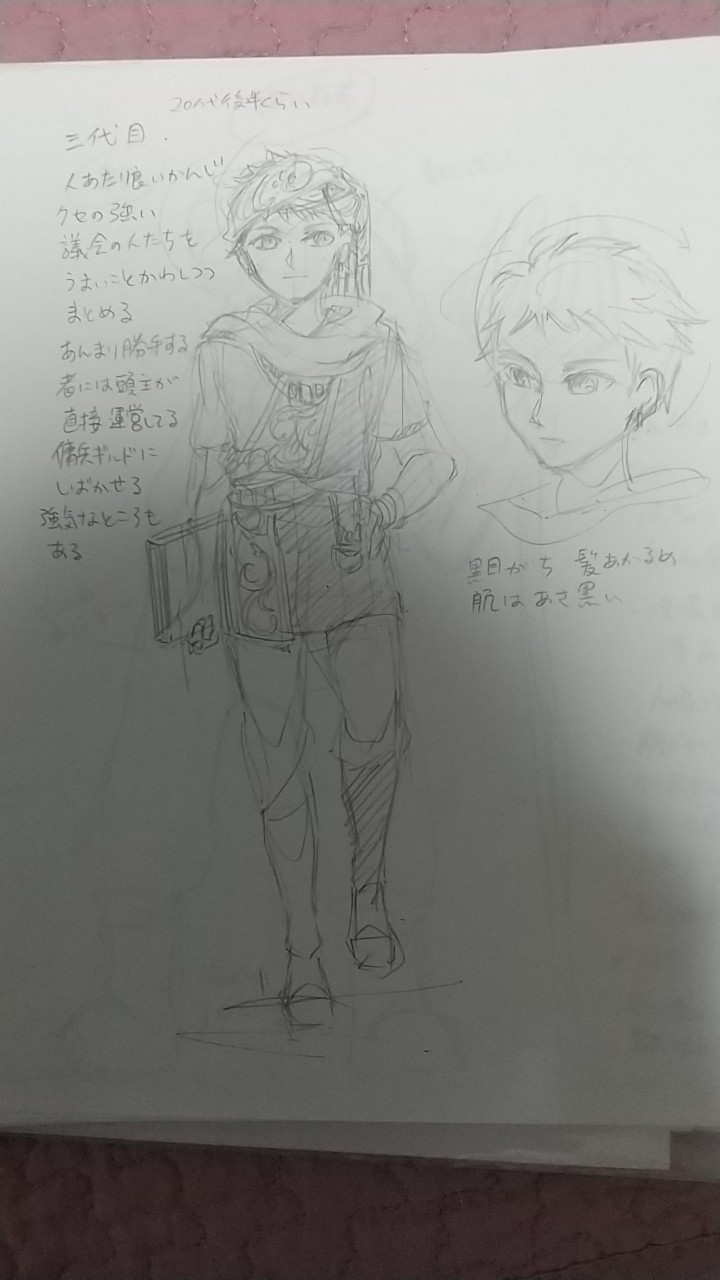 20代後半くらい
三代目.
人あたり良いかんじ
クセの強い
議会の人たちを
うまいことかわしつつ
まとめる
あんまり勝手する
者には頭主が
直接運営してる
傭兵ギルドに
しばかせる
強気なところも
ある
黒目がち 髪あかるめ
肌はあさ黒い